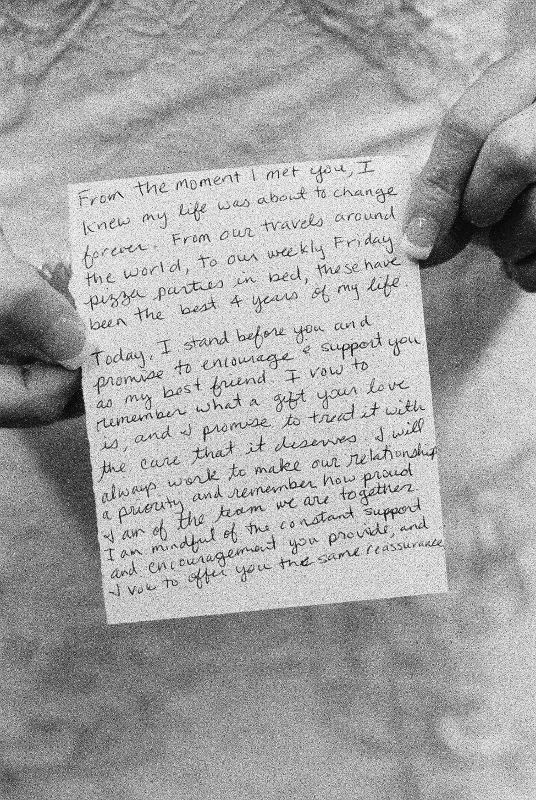 From the moment I met you, I
knew my life was about to change
forever. From our travels around
the world, to our weekly Friday
pizza parties in bed, these have
been the best 4 years of my life.
Today, I stand before you and
promise to encourage & support you
as my best friend. I vow to
remember what a gift your love
is, and I promise to treat it with
the care that it deserves. I will
always work to make our relationship
a priority and remember how proud
I am of the team we are together.
I am mindful of the constant support
and encouragement you provide, and
I vow to offer you the same reassurance